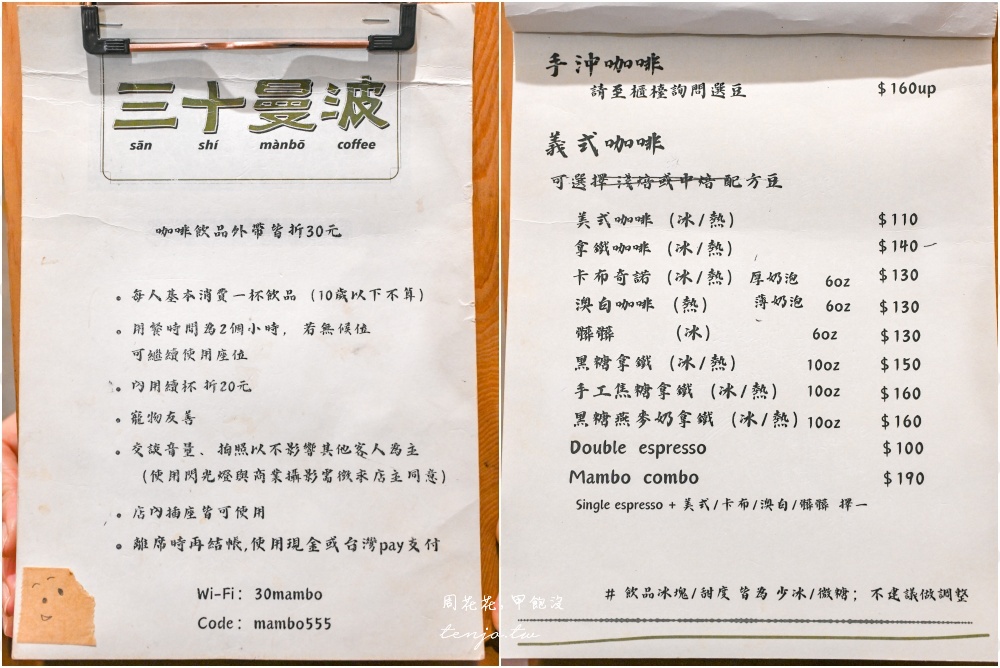 三十曼波
sān shí mànbō coffee
咖啡飲品外帶皆折30元
。每人基本消費一杯飲品 (10歲以下不算)
。用餐時間為2個小時, 若無候位
可繼續使用座位
。內用續杯 折20元
。寵物友善
。交談音量、拍照以不影響其他客人為主
(使用閃光燈與商業攝影需徵求店主同意)
。店內插座皆可使用
。離席時再結帳,使用現金或台灣pay支付
Wi-Fi: 30mambo
Code: mambo555
手沖咖啡
請至櫃檯詢問選豆 $160up
義式咖啡
可選擇淺焙或中焙配方豆
美式咖啡 (冰/熱) $110
拿鐵咖啡 (冰/熱) $140
卡布奇諾 (冰/熱) 厚奶泡 6oz $130
澳白咖啡 (熱) 薄奶泡 6oz $130
髒髒 (冰) 6oz $130
黑糖拿鐵 (冰/熱) 10oz $150
手工焦糖拿鐵 (冰/熱) 10oz $160
黑糖燕麥奶拿鐵 (冰/熱) 10oz $160
Double espresso $100
Mambo combo $190
Single espresso + 美式/卡布/澳白/髒髒 擇一
# 飲品冰塊/甜度 皆為 少冰/微糖; 不建議做調整
周花花,甲飽沒
tenjo.tw